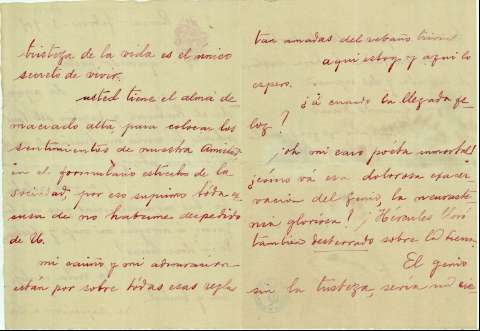 tristeza de la vida es el único
secreto de vivir.
usted tiene el alma de-
maciado alta para colocar los
sentimientos de nuestra Amistad
en el formulario estrecho de la
sociedad, por eso suprimo toda es-
cusa de no haberme despedido
de U.
mi cariño y mi admiracion
están por sobre todas esas regla
tan amadas del rebaño
aqui estoy y aqui lo
espero.
¿á cuando la llegada fe-
liz?
¡oh mi caro poéta inmortal!
¿cómo vá esa dolorosa exacer-
vación del Genio, la neuraste-
nia gloriosa? ¡Hércules lloró
tambien desterrado sobre la tierra
El genio
sin la tristeza, seria un